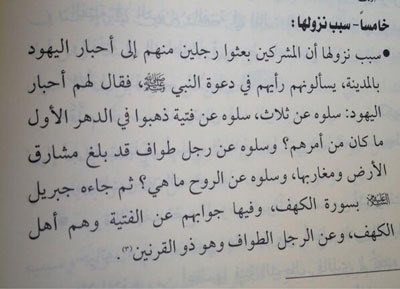 خامساً- سبب نزولها:
• سبب نزولها أن المشركين بعثوا رجلين منهم إلى أحبار اليهود
بالمدينة، يسألونهم رأيهم في دعوة النبي ﷺ، فقال لهم أحبار
اليهود: سلوه عن ثلاث، سلوه عن فتية ذهبوا في الدهر الأول
ما كان من أمرهم؟ وسلوه عن رجل طواف قد بلغ مشارق
الأرض ومغاربها، وسلوه عن الروح ما هي؟ ثم جاءه جبريل
بسورة الكهف، وفيها جوابهم عن الفتية وهم أهل
الكهف، وعن الرجل الطواف وهو ذو القرنين(٣).